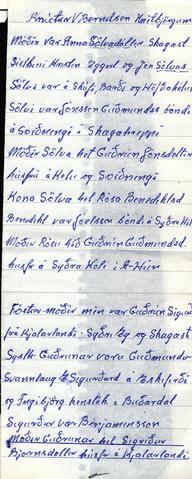 Móðir var Anna Sölvadóttir Skagast
Systkini Kristín Eggert og Jón Sölvas
Sölvi var á Skúfi, Barði og Höfðahólum
Sölvi var Jónsson Guðmundss bóndi
á Geitnengi í Skagahreppi
Móðir Sölva hét Guðrún Jónsdóttir
húsfrú á Hóli og
Kona Sölva hét Rósa Benediktsd
Benedikt var Jóelsson bóndi á Syðra Hól
Móðir Rósu hét Guðrún Guðmundsd
húsfr á Syðra Hóli í A-Hún
Fóstur móðir mín var Guðrún Sigurð
frá Kjalarlandi Syðri Ey og Skagast
Systk Guðrúnar voru Guðmundur
Svannlaug Sigurðard á Eskifirði
og Ingibjörg kennslk í Búðardal
Sigurður var Benjamínsson
Móðir Guðrúnar hét Sigríður
Björnsdóttir húsfr á Kjalarlandi